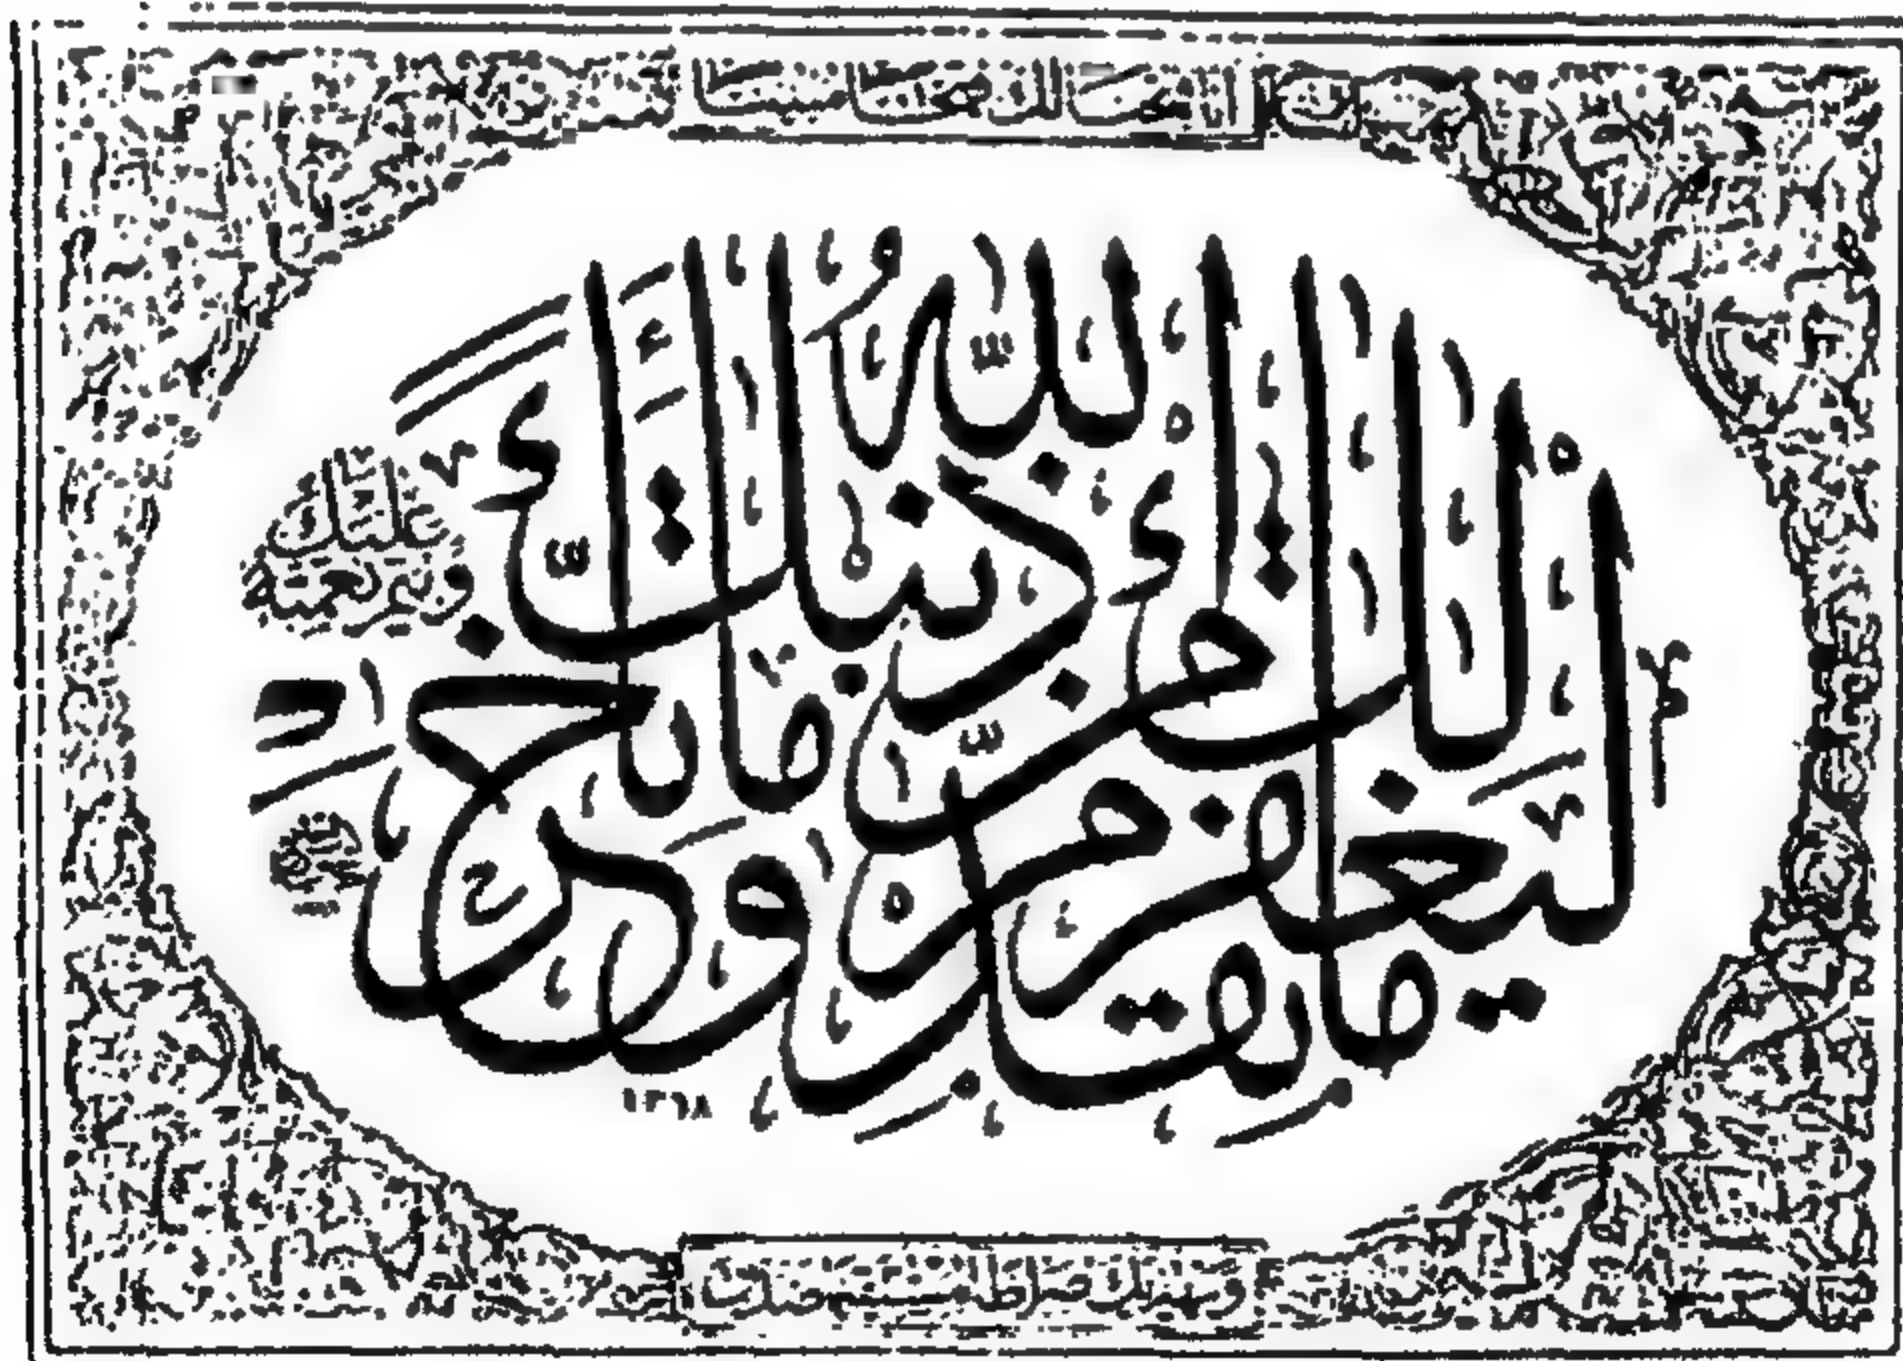 انا فتحنا لك فتحا مبينا
لِيَغْفِرَ لَكَ اللّٰهُ مَا تَقَدَّمَ مِنْ ذَنْبِكَ وَمَا تَأَخَّرَ
ويتم نعمته عليك
١٣٦٨
ويهديك صراطا مستقيما